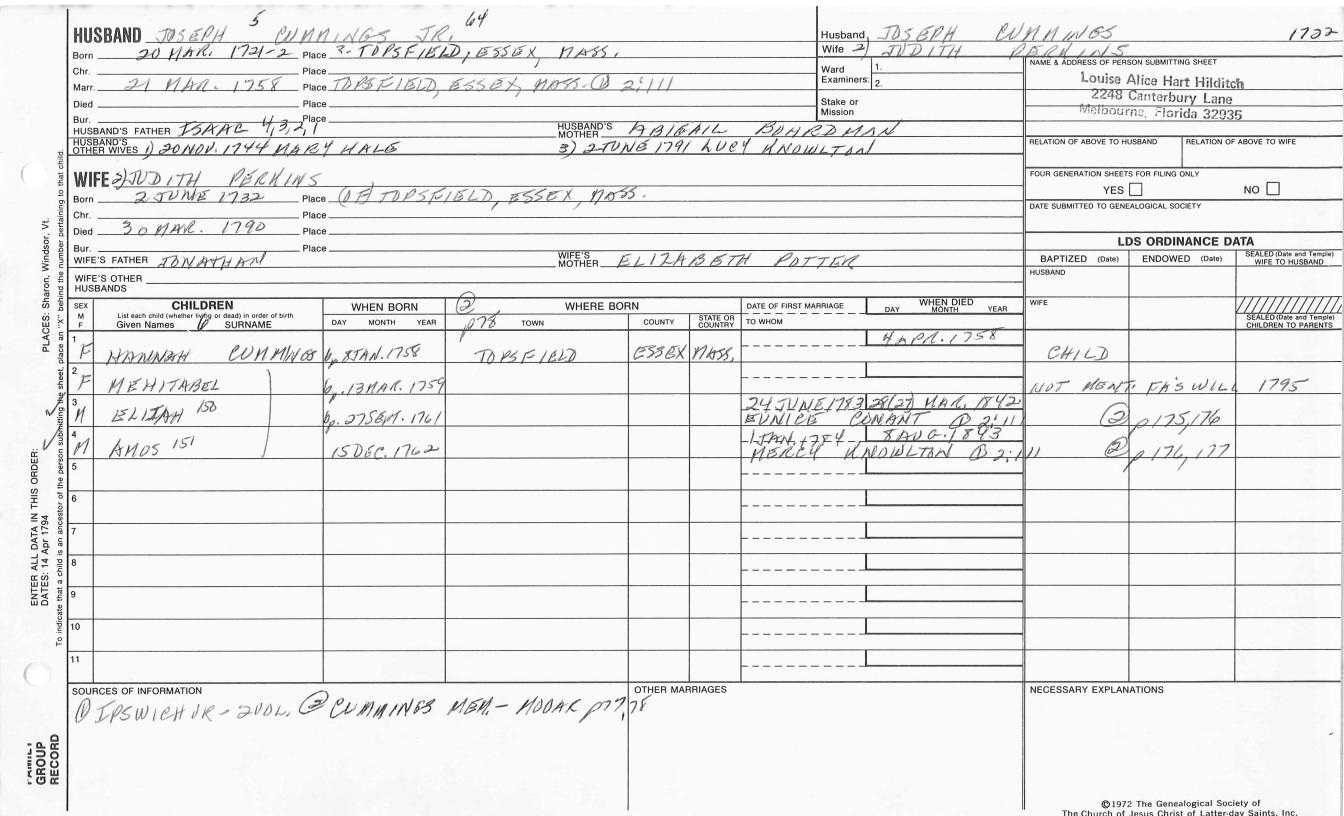 5 64
HUSBAND JOSEPH CUMMINGS JR.
Born 20 MAR. 1721-2 Place 2. TOPSFIELD, ESSEX, MASS.
Chr. Place
Marr. 21 MAR. 1758 Place TOPSFIELD, ESSEX, MASS. ① 2:111
Died Place
Bur. Place
HUSBAND'S FATHER ISAAC 4,3,2,1 HUSBAND'S MOTHER ABIGAIL BOARDMAN
HUSBAND'S OTHER WIVES 1) 20 NOV. 1744 MARY HALE 3) 2 JUNE 1791 LUCY KNOWLTON
WIFE 2) JUDITH PERKINS
Born 2 JUNE 1732 Place (OF) TOPSFIELD, ESSEX, MASS.
Chr. Place
Died 30 MAR. 1790 Place
Bur. Place
WIFE'S FATHER JONATHAN WIFE'S MOTHER ELIZABETH POTTER
WIFE'S OTHER HUSBANDS
Husband JOSEPH CUMMINGS 1722
Wife 2) JUDITH PERKINS
Ward Examiners: 1.
2.
Stake or Mission
NAME & ADDRESS OF PERSON SUBMITTING SHEET
Louise Alice Hart Hilditch
2248 Canterbury Lane
Melbourne, Florida 32935
RELATION OF ABOVE TO HUSBAND RELATION OF ABOVE TO WIFE
FOUR GENERATION SHEETS FOR FILING ONLY
YES NO
DATE SUBMITTED TO GENEALOGICAL SOCIETY
LDS ORDINANCE DATA
BAPTIZED (Date) ENDOWED (Date) SEALED (Date and Temple) WIFE TO HUSBAND
HUSBAND
WIFE
SEALED (Date and Temple) CHILDREN TO PARENTS
SEX M F CHILDREN WHEN BORN ② WHERE BORN DATE OF FIRST MARRIAGE WHEN DIED
List each child (whether living or dead) in order of birth
Given Names SURNAME DAY MONTH YEAR p78 TOWN COUNTY STATE OR COUNTRY TO WHOM DAY MONTH YEAR
1 F HANNAH CUMMINGS bp. 8 JAN. 1758 TOPSFIELD ESSEX MASS. 4 APR. 1758 CHILD
2 F MEHITABEL bp. 13 MAR. 1759 NOT MENT. FA'S WILL 1795
3 M ELIJAH 150 bp. 27 SEPT. 1761 24 JUNE 1783 28(27) MAR. 1842
EUNICE CONANT ① 2:111 ② p175,176
4 M AMOS 151 15 DEC. 1762 1 JAN. 1784 8 AUG. 1843
MERCY KNOWLTON ① 2:111 ② p176,177
5
6
7
8
9
10
11
SOURCES OF INFORMATION
① IPSWICH VR - 2 VOL. ② CUMMINGS MEM. - MOOAR p77,78
OTHER MARRIAGES
NECESSARY EXPLANATIONS
©1972 The Genealogical Society of
The Church of Jesus Christ of Latter-day Saints, Inc.
ENTER ALL DATA IN THIS ORDER:
DATES: 14 Apr 1794 PLACES: Sharon, Windsor, Vt.
To indicate that a child is an ancestor of the person submitting the sheet, place an "X" behind the number pertaining to that child.
FAMILY GROUP RECORD